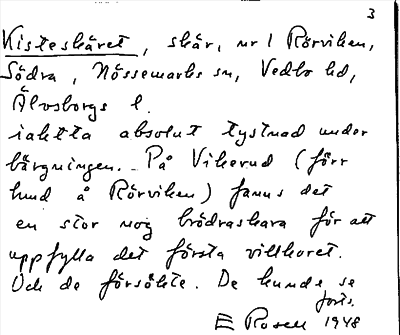 3
Kisteskäret, skär, nr 1 Rörviken,
Södra, Nössemarks sn, Vedbo hd,
Älvsborgs l.
iaktta absolut tystnad under
bärgningen. På Vikerud (förr
hund å Rörviken) fanns det
en stor nog brödraskara för att
uppfylla det första villkoret.
Och de försökte. De kunde se
forts.
E Rosell 1948